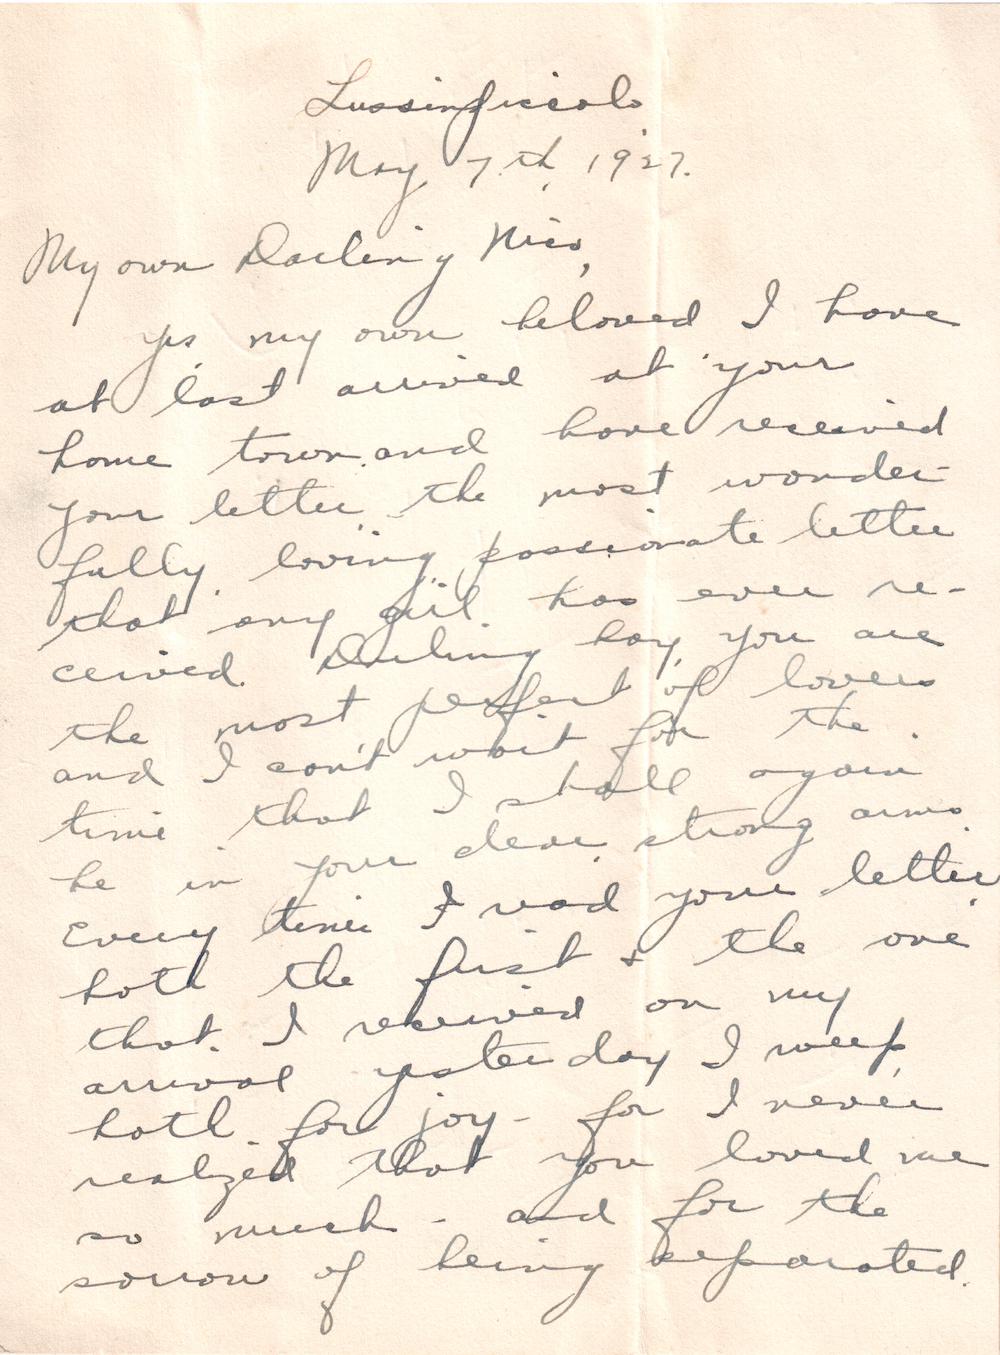 Lussinpiccolo
May 7th, 1927.
My own Darling Nico,
yes, my own beloved I have
at last arrived at your
home town and have received
your letter, the most wonder-
fully, loving, passionate letter
that any girl has ever re-
ceived. Darling boy, you are
the most perfect of lovers
and I can't wait for the
time that I shall again
be in your dear, strong arms.
Every time I read your letter,
both the first & the one
that I received on my
arrival yesterday I weep,
both for joy - for I never
realized that you loved me
so much - and for the
sorrow of being separated.